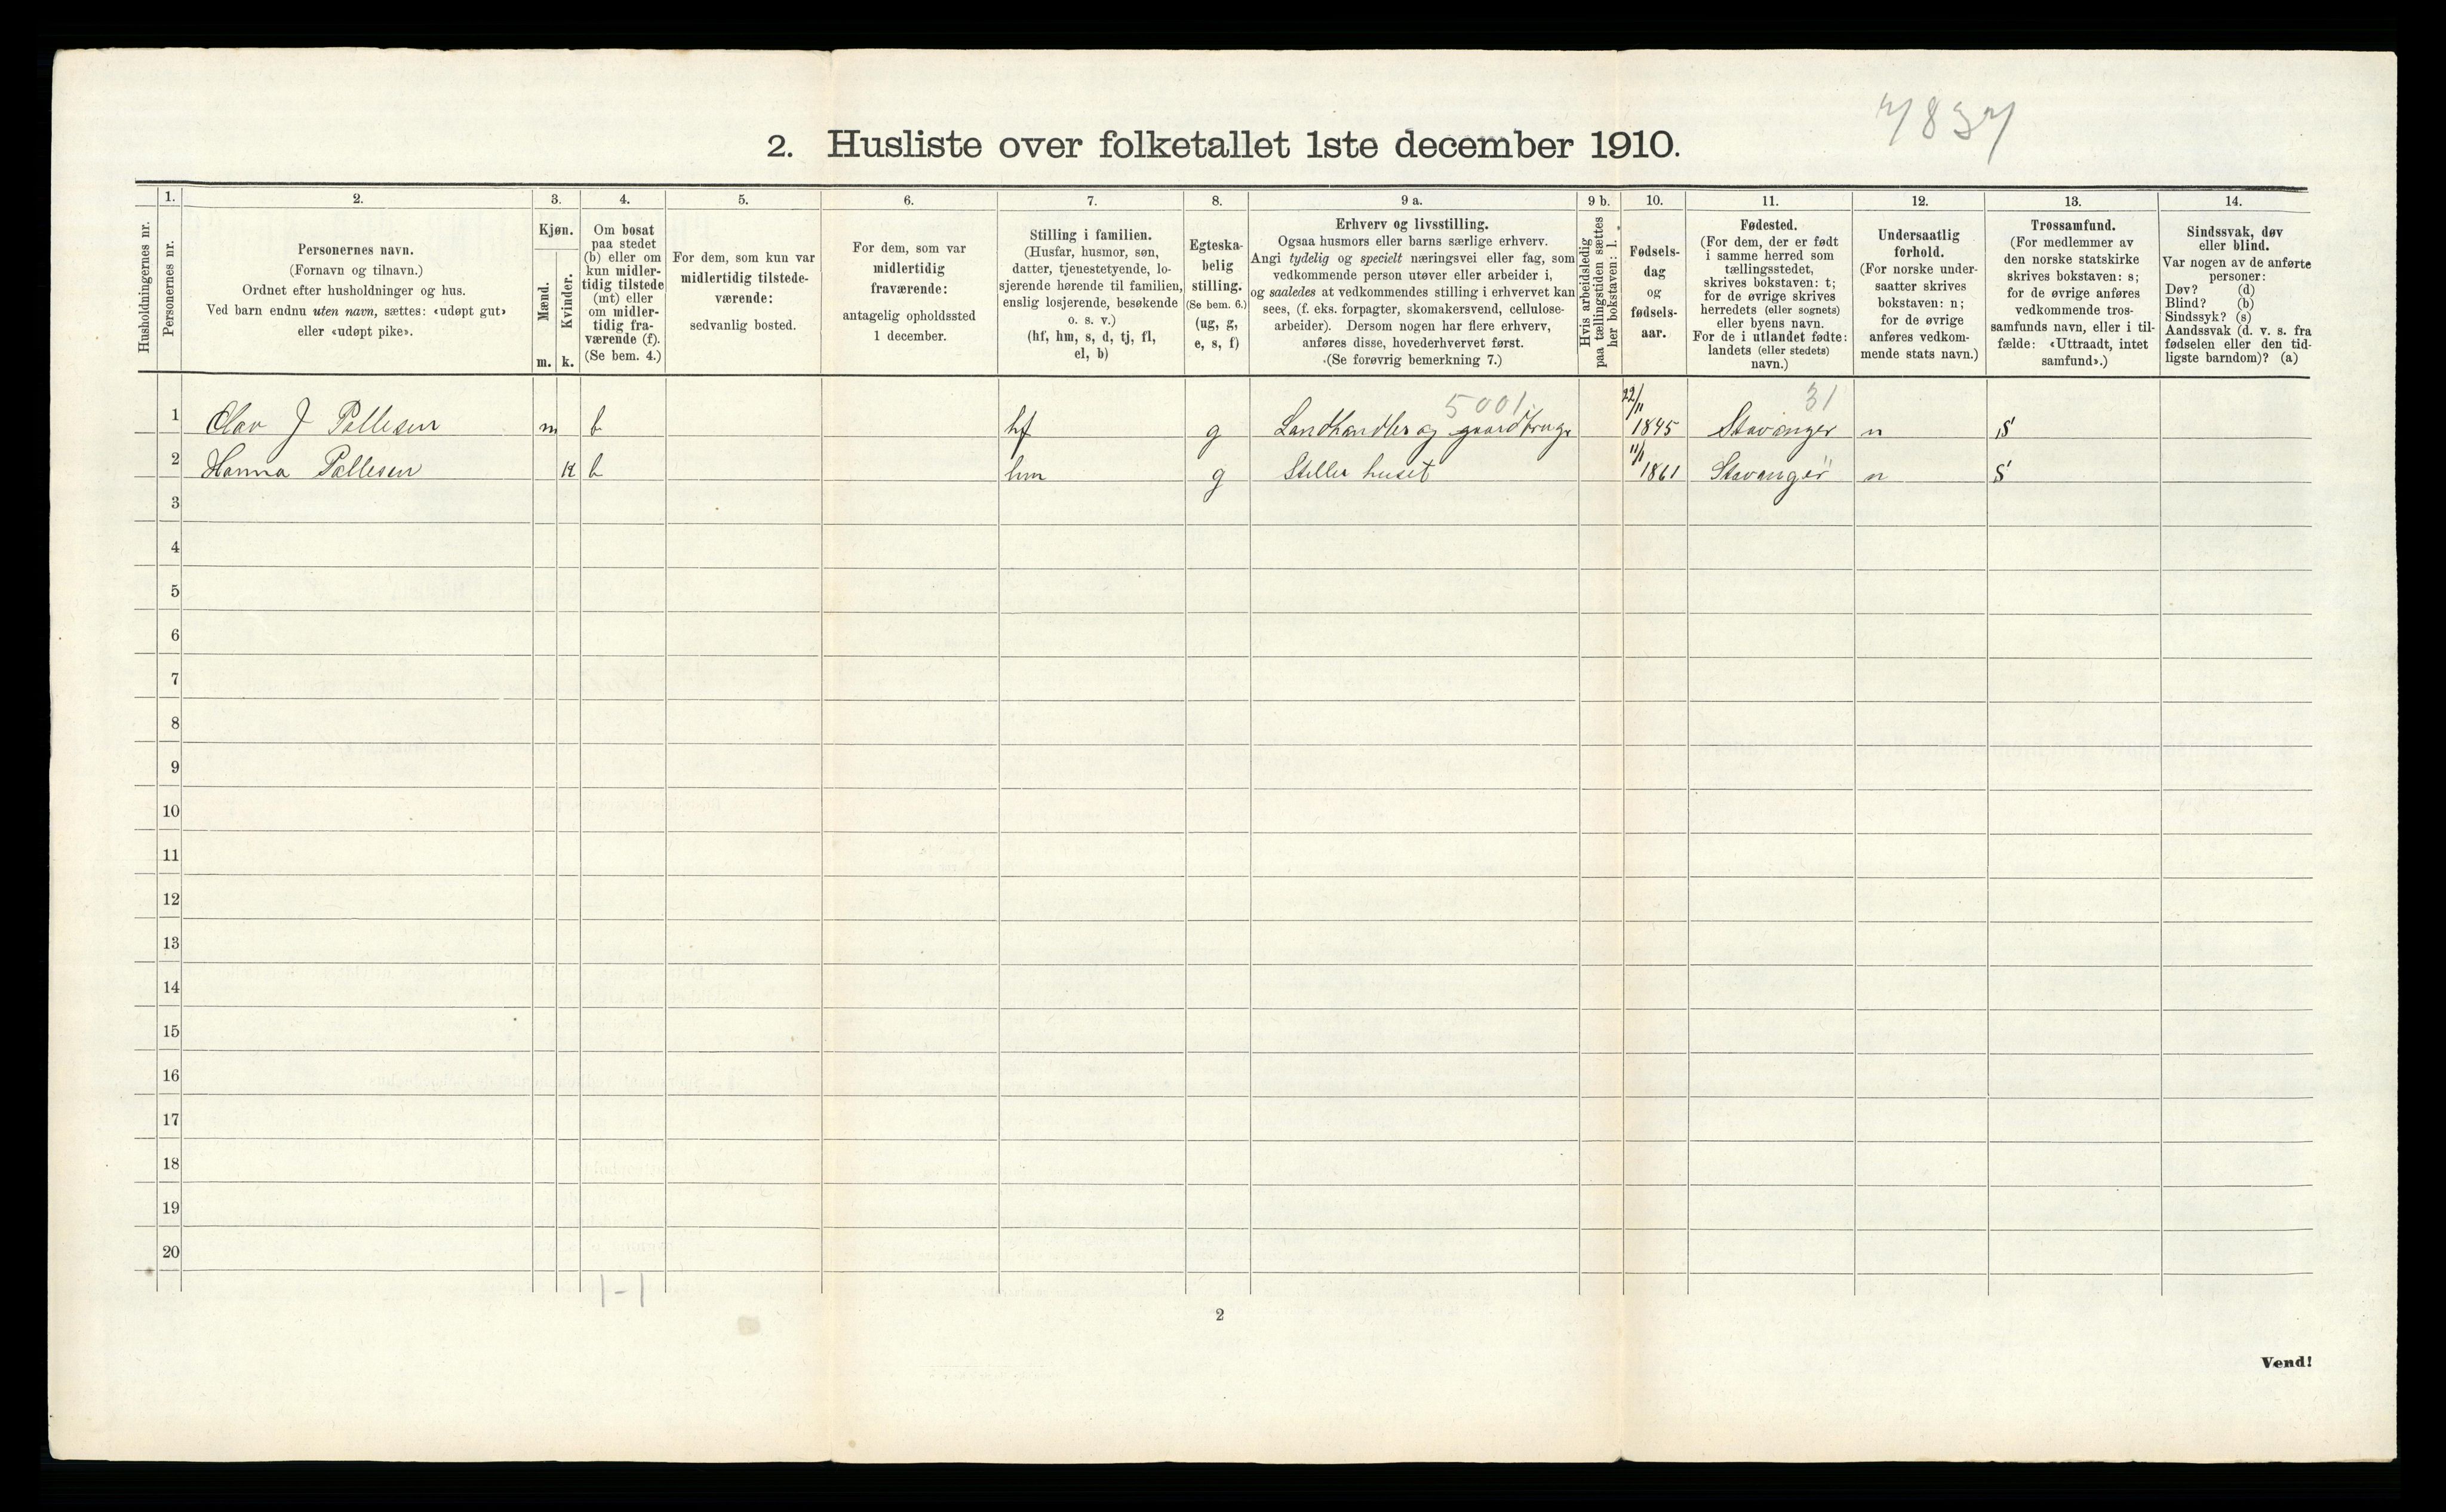 7837
2. Husliste over folketallet 1ste december 1910.
Husholdningernes nr.
1.
Personernes nr.
2.
Personernes navn.
(Fornavn og tilnavn.)
Ordnet efter husholdninger og hus.
Ved barn endnu uten navn, sættes: «udøpt gut»
eller «udøpt pike».
3.
Kjøn.
Mænd.
Kvinder.
m. k.
4.
Om bosat
paa stedet
(b) eller om
kun midler-
tidig tilstede
(mt) eller
om midler-
tidig fra-
værende (f).
(Se bem. 4.)
5.
For dem, som kun var
midlertidig tilstede-
værende:
sedvanlig bosted.
6.
For dem, som var
midlertidig
fraværende:
antagelig opholdssted
1 december.
7.
Stilling i familien.
(Husfar, husmor, søn,
datter, tjenestetyende, lo-
sjerende hørende til familien,
enslig losjerende, besøkende
o. s. v.)
(hf, hm, s, d, tj, fl,
el, b)
8.
Egteska-
belig
stilling.
(Se bem. 6.)
(ug, g,
e, s, f)
9 a.
Erhverv og livsstilling.
Ogsaa husmors eller barns særlige erhverv.
Angi tydelig og specielt næringsvei eller fag, som
vedkommende person utøver eller arbeider i,
og saaledes at vedkommendes stilling i erhvervet kan
sees, (f. eks. forpagter, skomakersvend, cellulose-
arbeider). Dersom nogen har flere erhverv,
anføres disse, hovederhvervet først.
(Se forøvrig bemerkning 7.)
9 b.
Hvis arbeidsledig
paa tællingstiden sættes
her bokstaven: l.
10.
Fødsels-
dag
og
fødsels-
aar.
11.
Fødested.
(For dem, der er født
i samme herred som
tællingsstedet,
skrives bokstaven: t;
for de øvrige skrives
herredets (eller sognets)
eller byens navn.
For de i utlandet fødte:
landets (eller stedets)
navn.)
12.
Undersaatlig
forhold.
(For norske under-
saatter skrives
bokstaven: n;
for de øvrige
anføres vedkom-
mende stats navn.)
13.
Trossamfund.
(For medlemmer av
den norske statskirke
skrives bokstaven: s;
for de øvrige anføres
vedkommende tros-
samfunds navn, eller i til-
fælde: «Uttraadt, intet
samfund».)
14.
Sindssvak, døv
eller blind.
Var nogen av de anførte
personer:
Døv? (d)
Blind? (b)
Sindssyk? (s)
Aandssvak (d. v. s. fra
fødselen eller den tid-
ligste barndom)? (a)
5001. 22/11 31
1 Olav J Pallesen m b hf g Landhandler og gaardbruger 1845 Stavanger n S
2 Hanna Pallesen k b hm g Steller huset 11/1 1861 Stavanger n S
3
4
5
6
7
8
9
10
11
12
13
14
15
16
17
18
19
20
1-1
2
Vend!